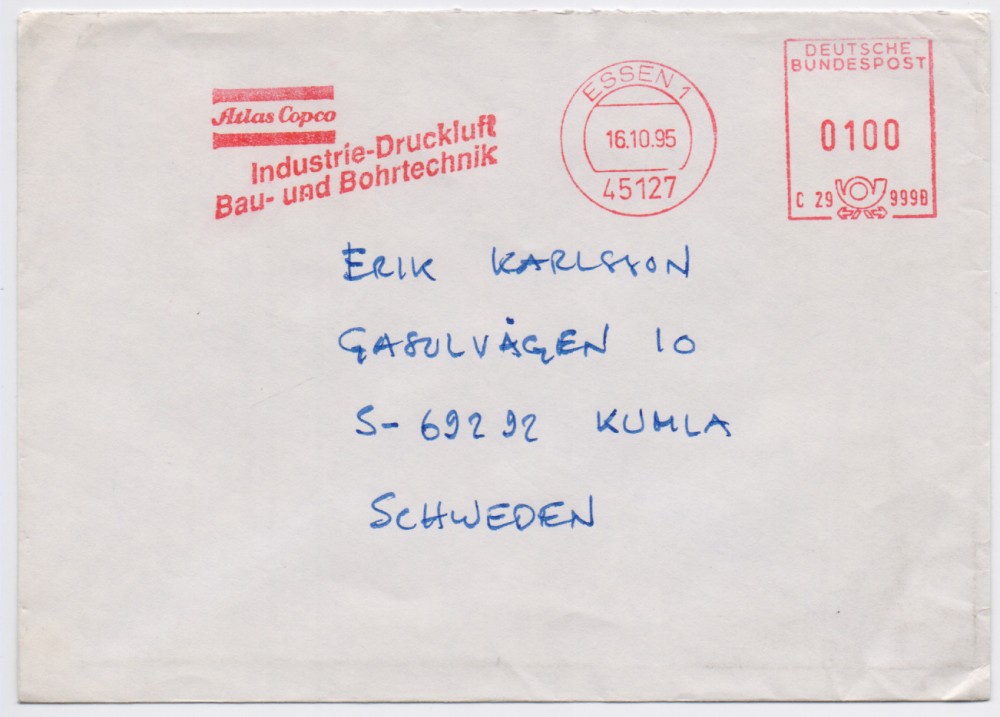 Atlas Copco
Industrie-Druckluft
Bau- und Bohrtechnik
ESSEN 1
16.10.95
45127
DEUTSCHE
BUNDESPOST
0100
C 29 999B
ERIK KARLSSON
GASOLVÄGEN 10
S-692 92 KUMLA
SCHWEDEN